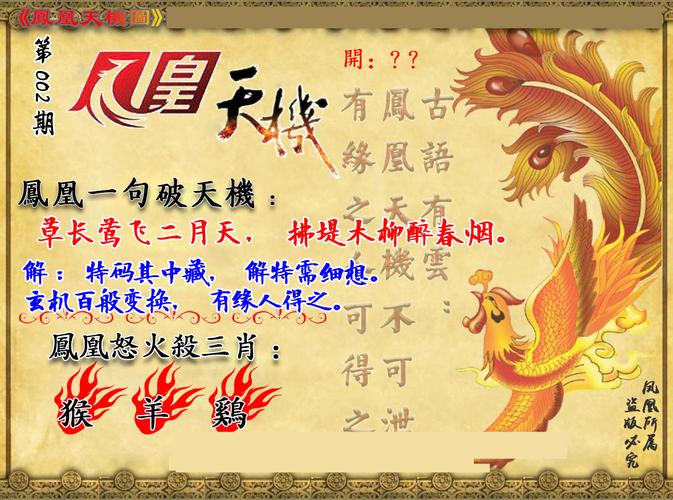 《鳳凰天機圖》
第002期
鳳凰
天機
開：？？
古語有雲：
鳳凰天機不可泄
有緣之人可得之
鳳凰一句破天機：
草长莺飞二月天， 拂堤木柳醉春烟。
解： 特码其中藏， 解特需细想。
玄机百般变换， 有缘人得之。
鳳凰怒火殺三肖：
猴 羊 鷄
凤凰所属
盗版必究